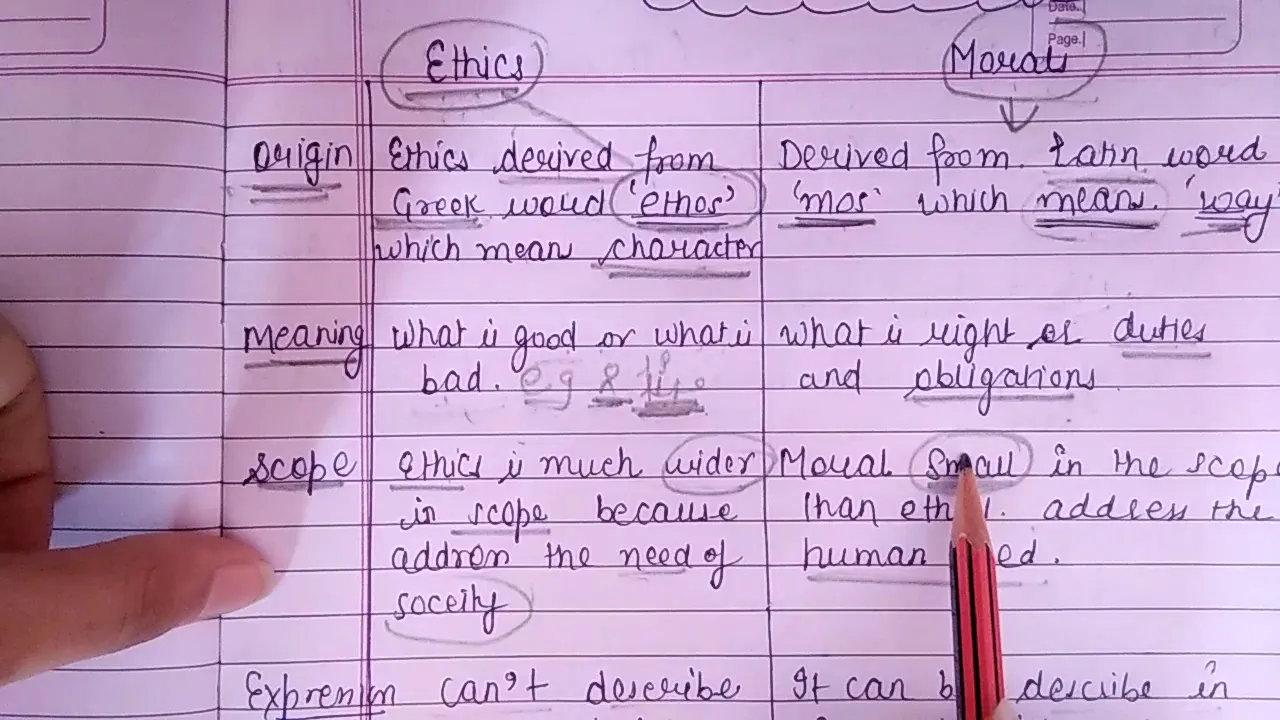 Date.
Page.
Ethics
Moral
Origin
Ethics derived from
Greek word 'ethos'
which mean character
Derived from Latin word
'mos' which mean 'way'
Meaning
What is good or what is
bad. e.g
what is right or duties
and obligations
Scope
ethics is much wider
in scope because
address the need of
soceity
Moral small in the scope
than address the
human
Expression
can't describe
It can describe in